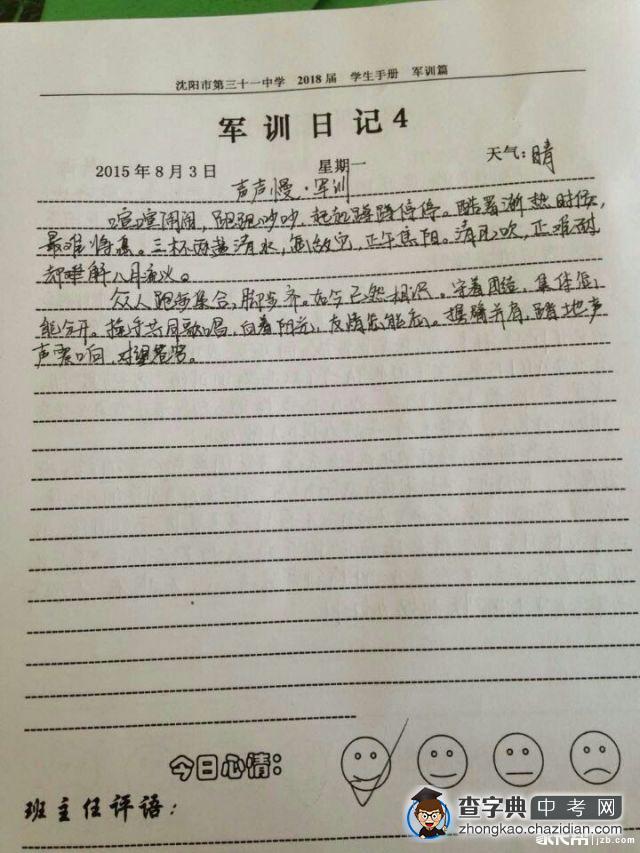 沈阳市第三十一中学 2018届 学生手册 军训篇
军训日记4
2015年8月3日 星期一 天气:晴
声声慢·军训
喧喧闹闹,跑跑吵吵,起起蹲蹲停停。酷暑渐热时候,
最难将息。三杯两盏清水,怎敌它,正午焦阳。清风吹,正难耐
却难解八月流火。
众人跑步集合,脚步齐。如今已然相识。守着团结,集体怎
能分开。操场共同歌唱,向着阳光,友情怎能忘。摆臂并肩,踏地声
声震响,对望
今日心情:
班主任评语:
查字典 中考网
zhongkao.chazidian.com
jzb.com